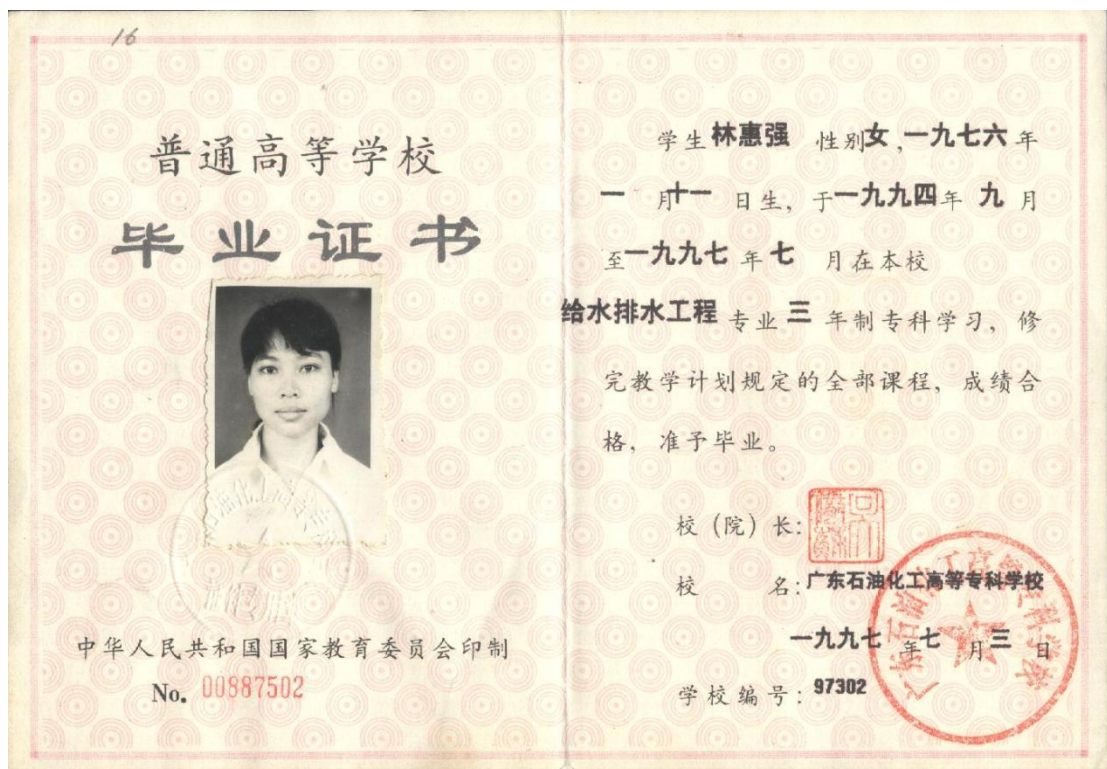 16
普通高等学校
毕业证书
中华人民共和国国家教育委员会印制
No. 00887502
学生林惠强 性别女,一九七六年
一月十一日生, 于一九九四年九月
至一九九七年七月在本校
给水排水工程专业三年制专科学习, 修
完教学计划规定的全部课程, 成绩合
格, 准予毕业。
校(院)长:
校 名: 广东石油化工高等专科学校
一九九七年七月三日
学校编号: 97302
广东石油化工高等专科学校